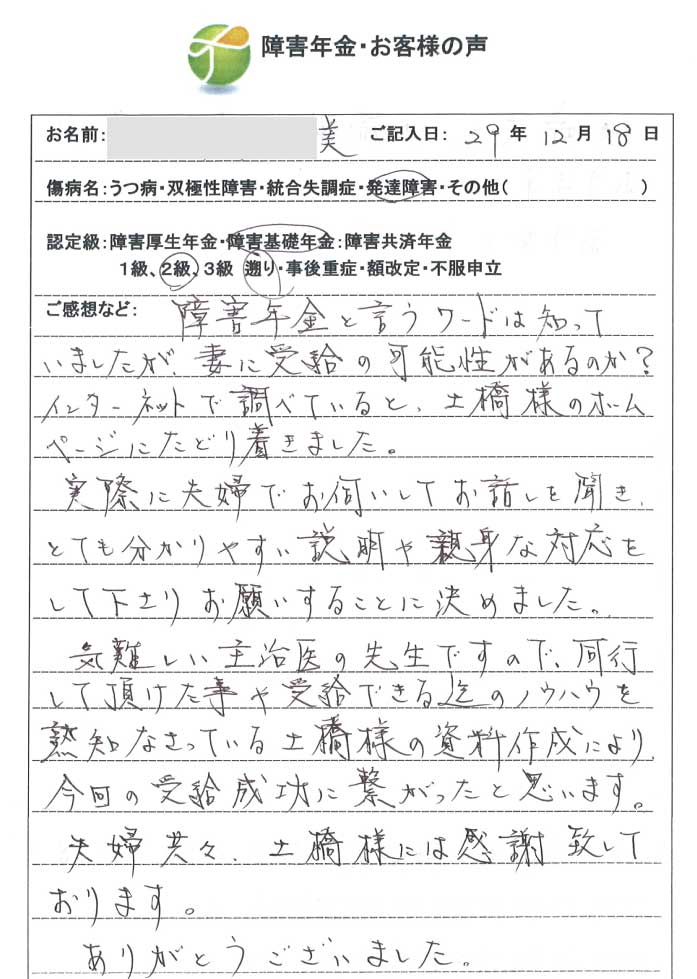 障害年金・お客様の声
お名前: 美 ご記入日: 29 年 12 月 18 日
傷病名:うつ病・双極性障害・統合失調症・発達障害・その他( )
認定級:障害厚生年金・障害基礎年金:障害共済年金
1級、2級、3級 遡り・事後重症・額改定・不服申立
ご感想など: 障害年金と言うワードは知って
いましたが、妻に受給の可能性があるのか?
インターネットで調べていると、土橋様のホーム
ページにたどり着きました。
実際に夫婦でお伺いしてお話しを聞き、
とても分かりやすい説明や親身な対応を
して下さりお願いすることに決めました。
気難しい主治医の先生ですので、同行
して頂けた事や受給できる迄のノウハウを
熟知なさっている土橋様の資料作成により、
今回の受給成功に繋がったと思います。
夫婦共々、土橋様には感謝致して
おります。
ありがとうございました。